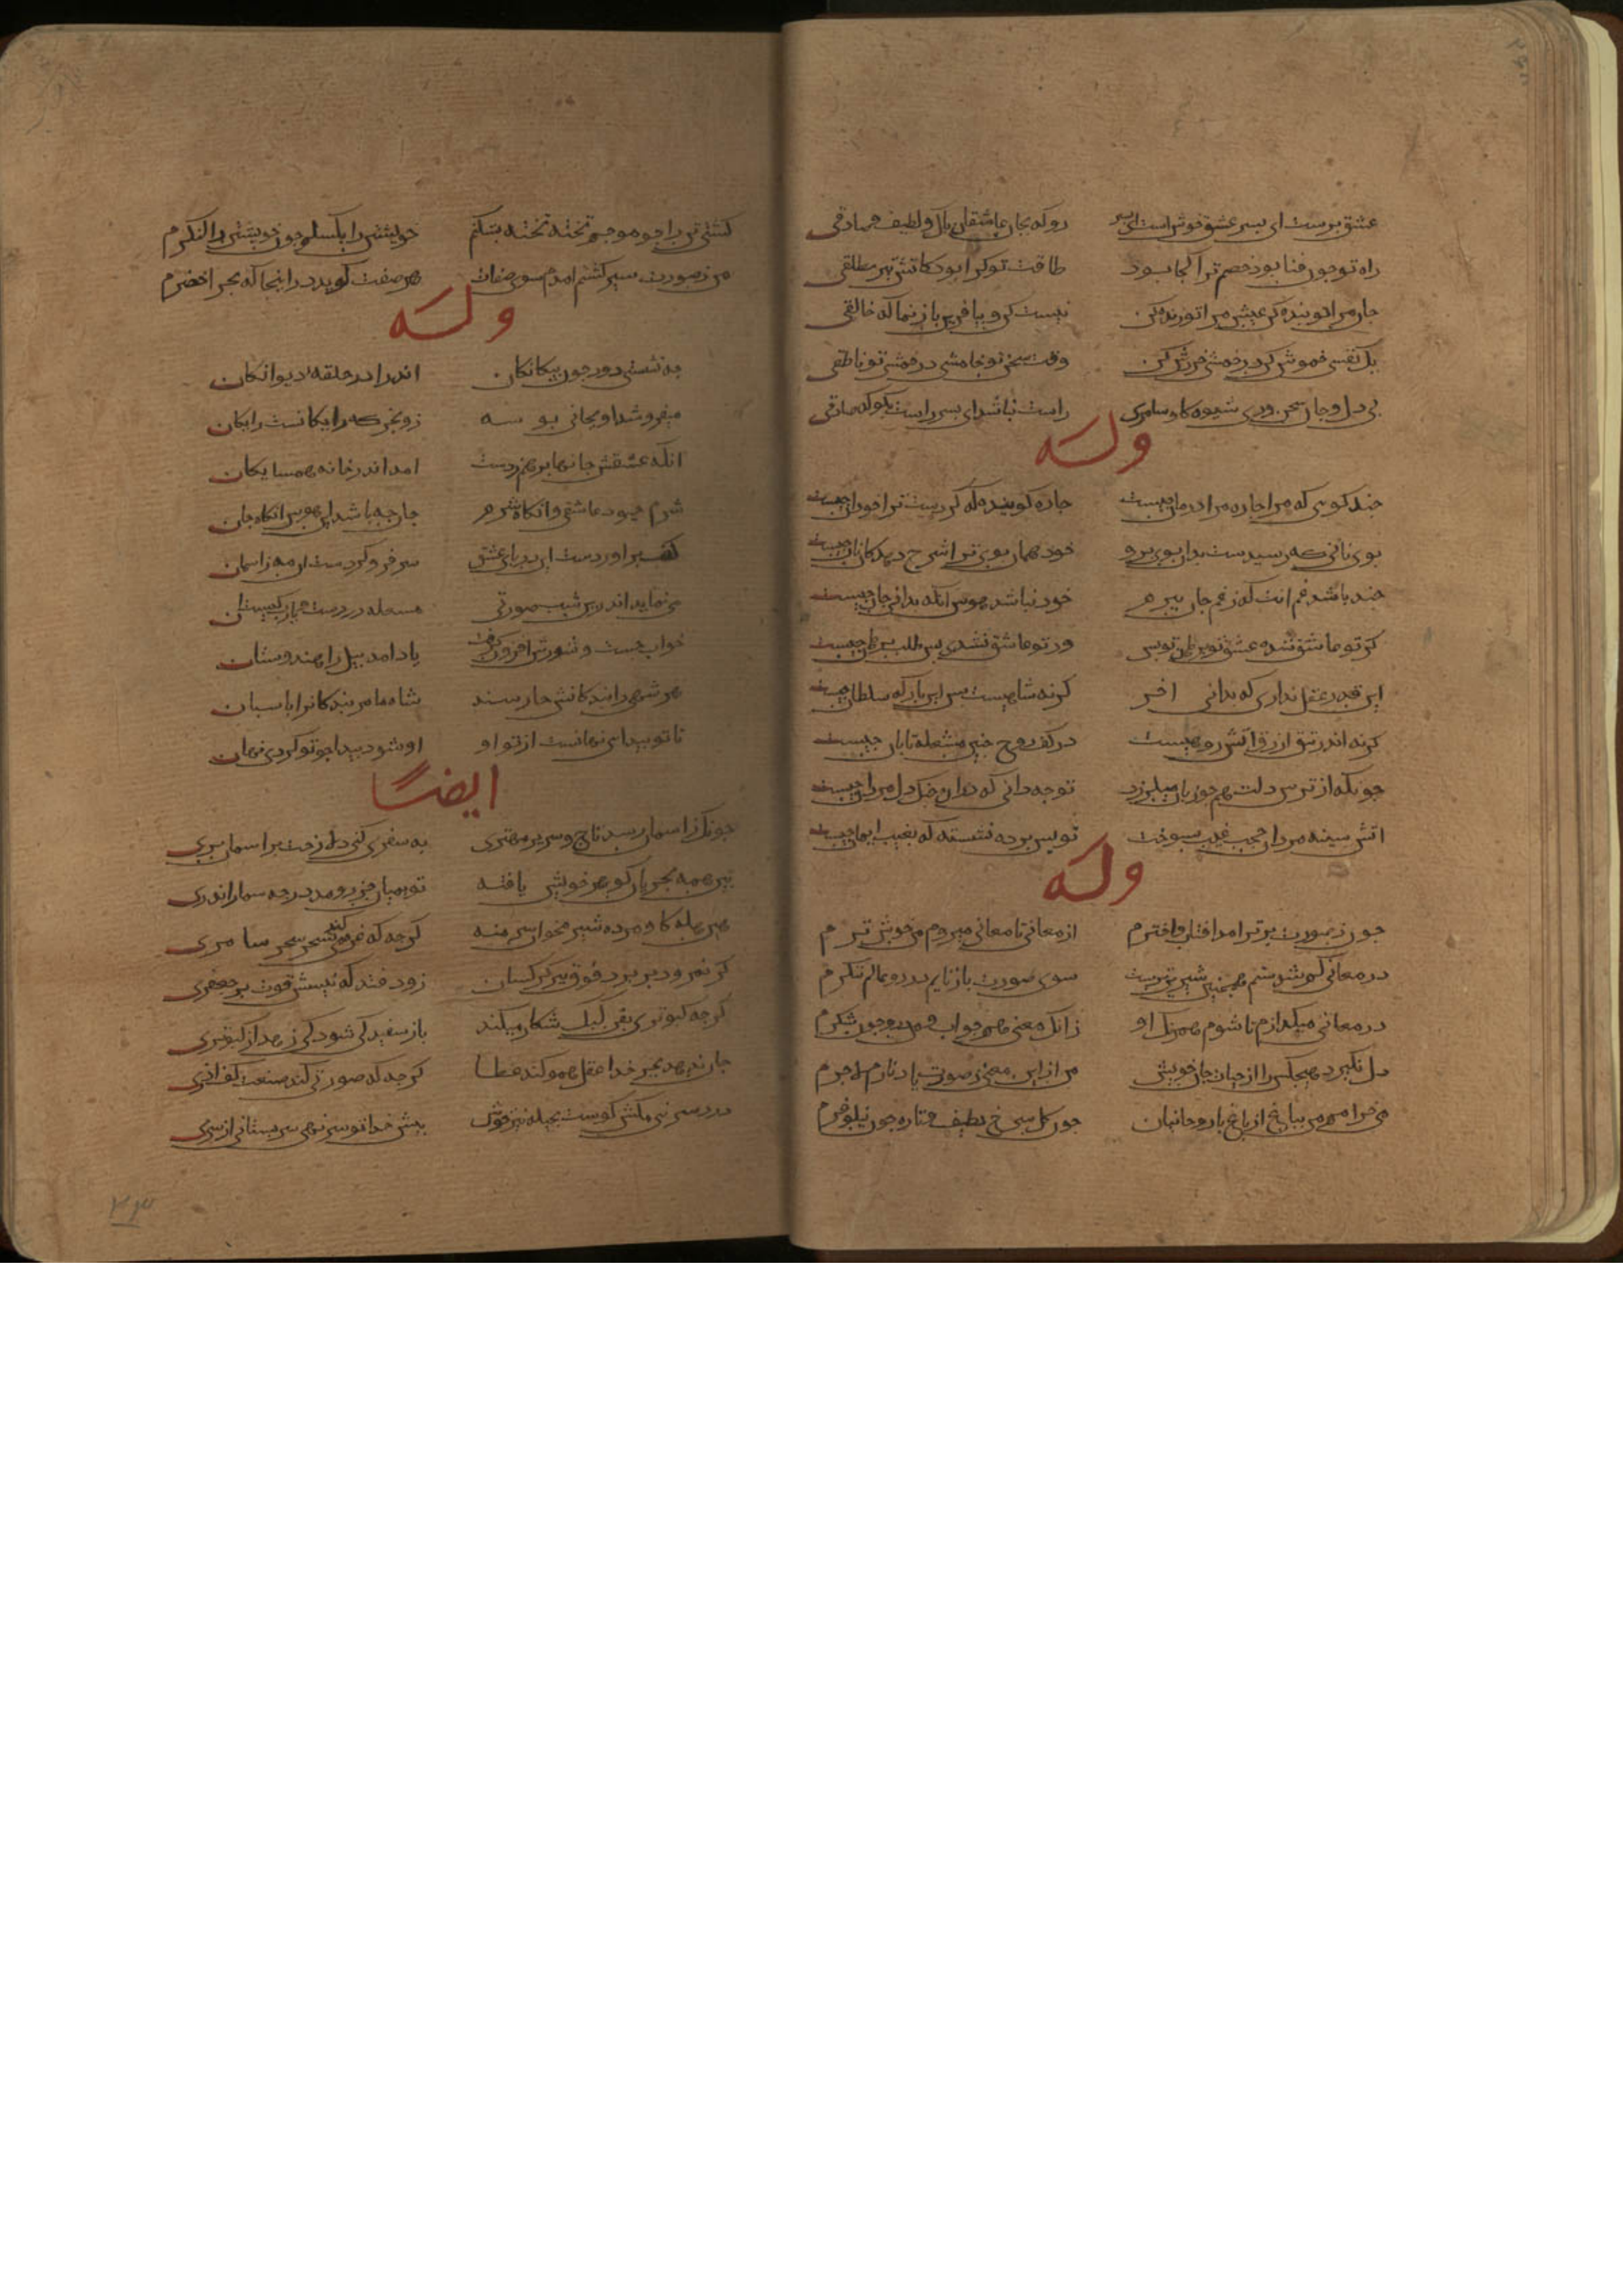 عشق پرست ای بسر عشق خوش است ای بسر روکه بجان عاشقان باك ولطیف وصادقی
راه تو جون فنا بود خصم ترا کجا بود طاقت تو کرا بود کاتش تیز مطلقی
جان مرا تو بنده کن عیش مرا تو زنده کن نیست کن و بیافرین باز نما که خالقی
یك نفسی خموش کن در خمشی خروش کن وقت سخن تو خامشی در خمشی تو ناطقی
بی دل و جان سخن وری شیوه کاو سامری راست نباشد ای بسر راست بکو که صادقی
وله
جند کویی که مرا جاره مرا درمان جیست جاره جوینده که کردست ترا خود آن جیست
بوی نانی که رسیدست بدان بوی برو خود همان بوی ترا شرح دهد کان نان جیست
جند باشد غم آنت که ز غم جان ببرم خود نباشد هوس انکه بدانی جان جیست
کر تو عاشق شده عشق تو برهان تو بس ور تو عاشق نشدی بس طلب برهان جیست
این قدر عقل نداری که بدانی اخر کر نه شاهیست بس این بارکه سلطان جیست
کر نه اندر تتق ازرق اتش روییست در کف روح جنین مشعله تابان جیست
جونکه از ترس دلت همجو زنان میلرزد تو جه دانی که دران جنك دل مردان جیست
اتش سینه مردان حجب غیب بسوخت تو بس برده نشسته که بغیب ایمان جیست
وله
جون ز صورت برتر امد افتاب و اخترم از معانی تا معانی میروم من خوشترم
در معانی کم شدستم همجنین شیرینترست سوی صورت باز نایم در دو عالم ننکرم
در معانی میکدازم تا شوم همرنك او زانك معنی همجو اب و من درو جون شکرم
دل نکیرد هیجکس را از حیات جان خویش من ازین معنی ز صورت یاد نارم لاجرم
می خرامم من بباغ از باغ با روحانیان جون کل سرخ لطیف و تازه جون نیلوفرم
کشتی تن را جو موجم تخته تخته بشکنم خویشتن را بکسلم جون خویشتن را لنکرم
من ز صورت سیر کشتم امدم سوی صفات هر صفت کوید درا اینجا که بحر اخضرم
وله
جه نشستی دور جون بیکانکان اندرا در حلقه دیوانکان
میفروشد او بجانی بوسه رو بخر که رایکانست رایکان
انکه عشقش جانها برهم زدست امد اندر خانه همسایکان
شرم جبود عاشقی وانکاه شرم جان جه باشد این هوس وانکاه جان
کف براوردست این دریای عشق سر فرو کردست ان مه زاسمان
می نماید اندرین شب صورتی مشعله در دست یا رب کیست ان
خواب جست و شورش افزودن کرفت یاد امد بیل را هندوستان
هر شهی را بندکانش حارسند شاه ما مر بندکانرا باسبان
تا تو بیدایی نهانست از تو او او شود بیدا جو تو کردی نهان
ایضًا
جونك ز اسمان رسد تاج و سریر مهتری به سفری کنی دلا رخت بر اسمان بری
بین همه بحریان کوهر خویش یافته تو بمیان جزر و مد در جه شمار اندری
هین هله کاو مرده شیر مخوان سر منه کرجه که غرمی کند سحر سحر سامری
کر نمرود بر برد فوق ببر کرکسان زود فتد که نیستش قوت بر جعفری
کرجه کبوتری بفن کبك شکار میکند باز سفید کی شود کی رهد از کبوتری
جان ندهد بجز خدا عقل همو کند عطا کرجه که صورتی کند صنعت کف اذری
درد سر تنی مکش کوست بحیله نیز خوش بیش خدا تو سر نهی سر بستانی از سری